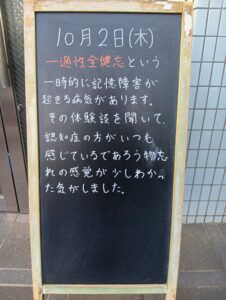 10月2日(木)
一過性全健忘という
一時的に記憶障害が
起きる病気があります。
その体験談を聞いて、
認知症の方がいつも
感じているであろう物忘
れの感覚が少しわかっ
た気がしました。